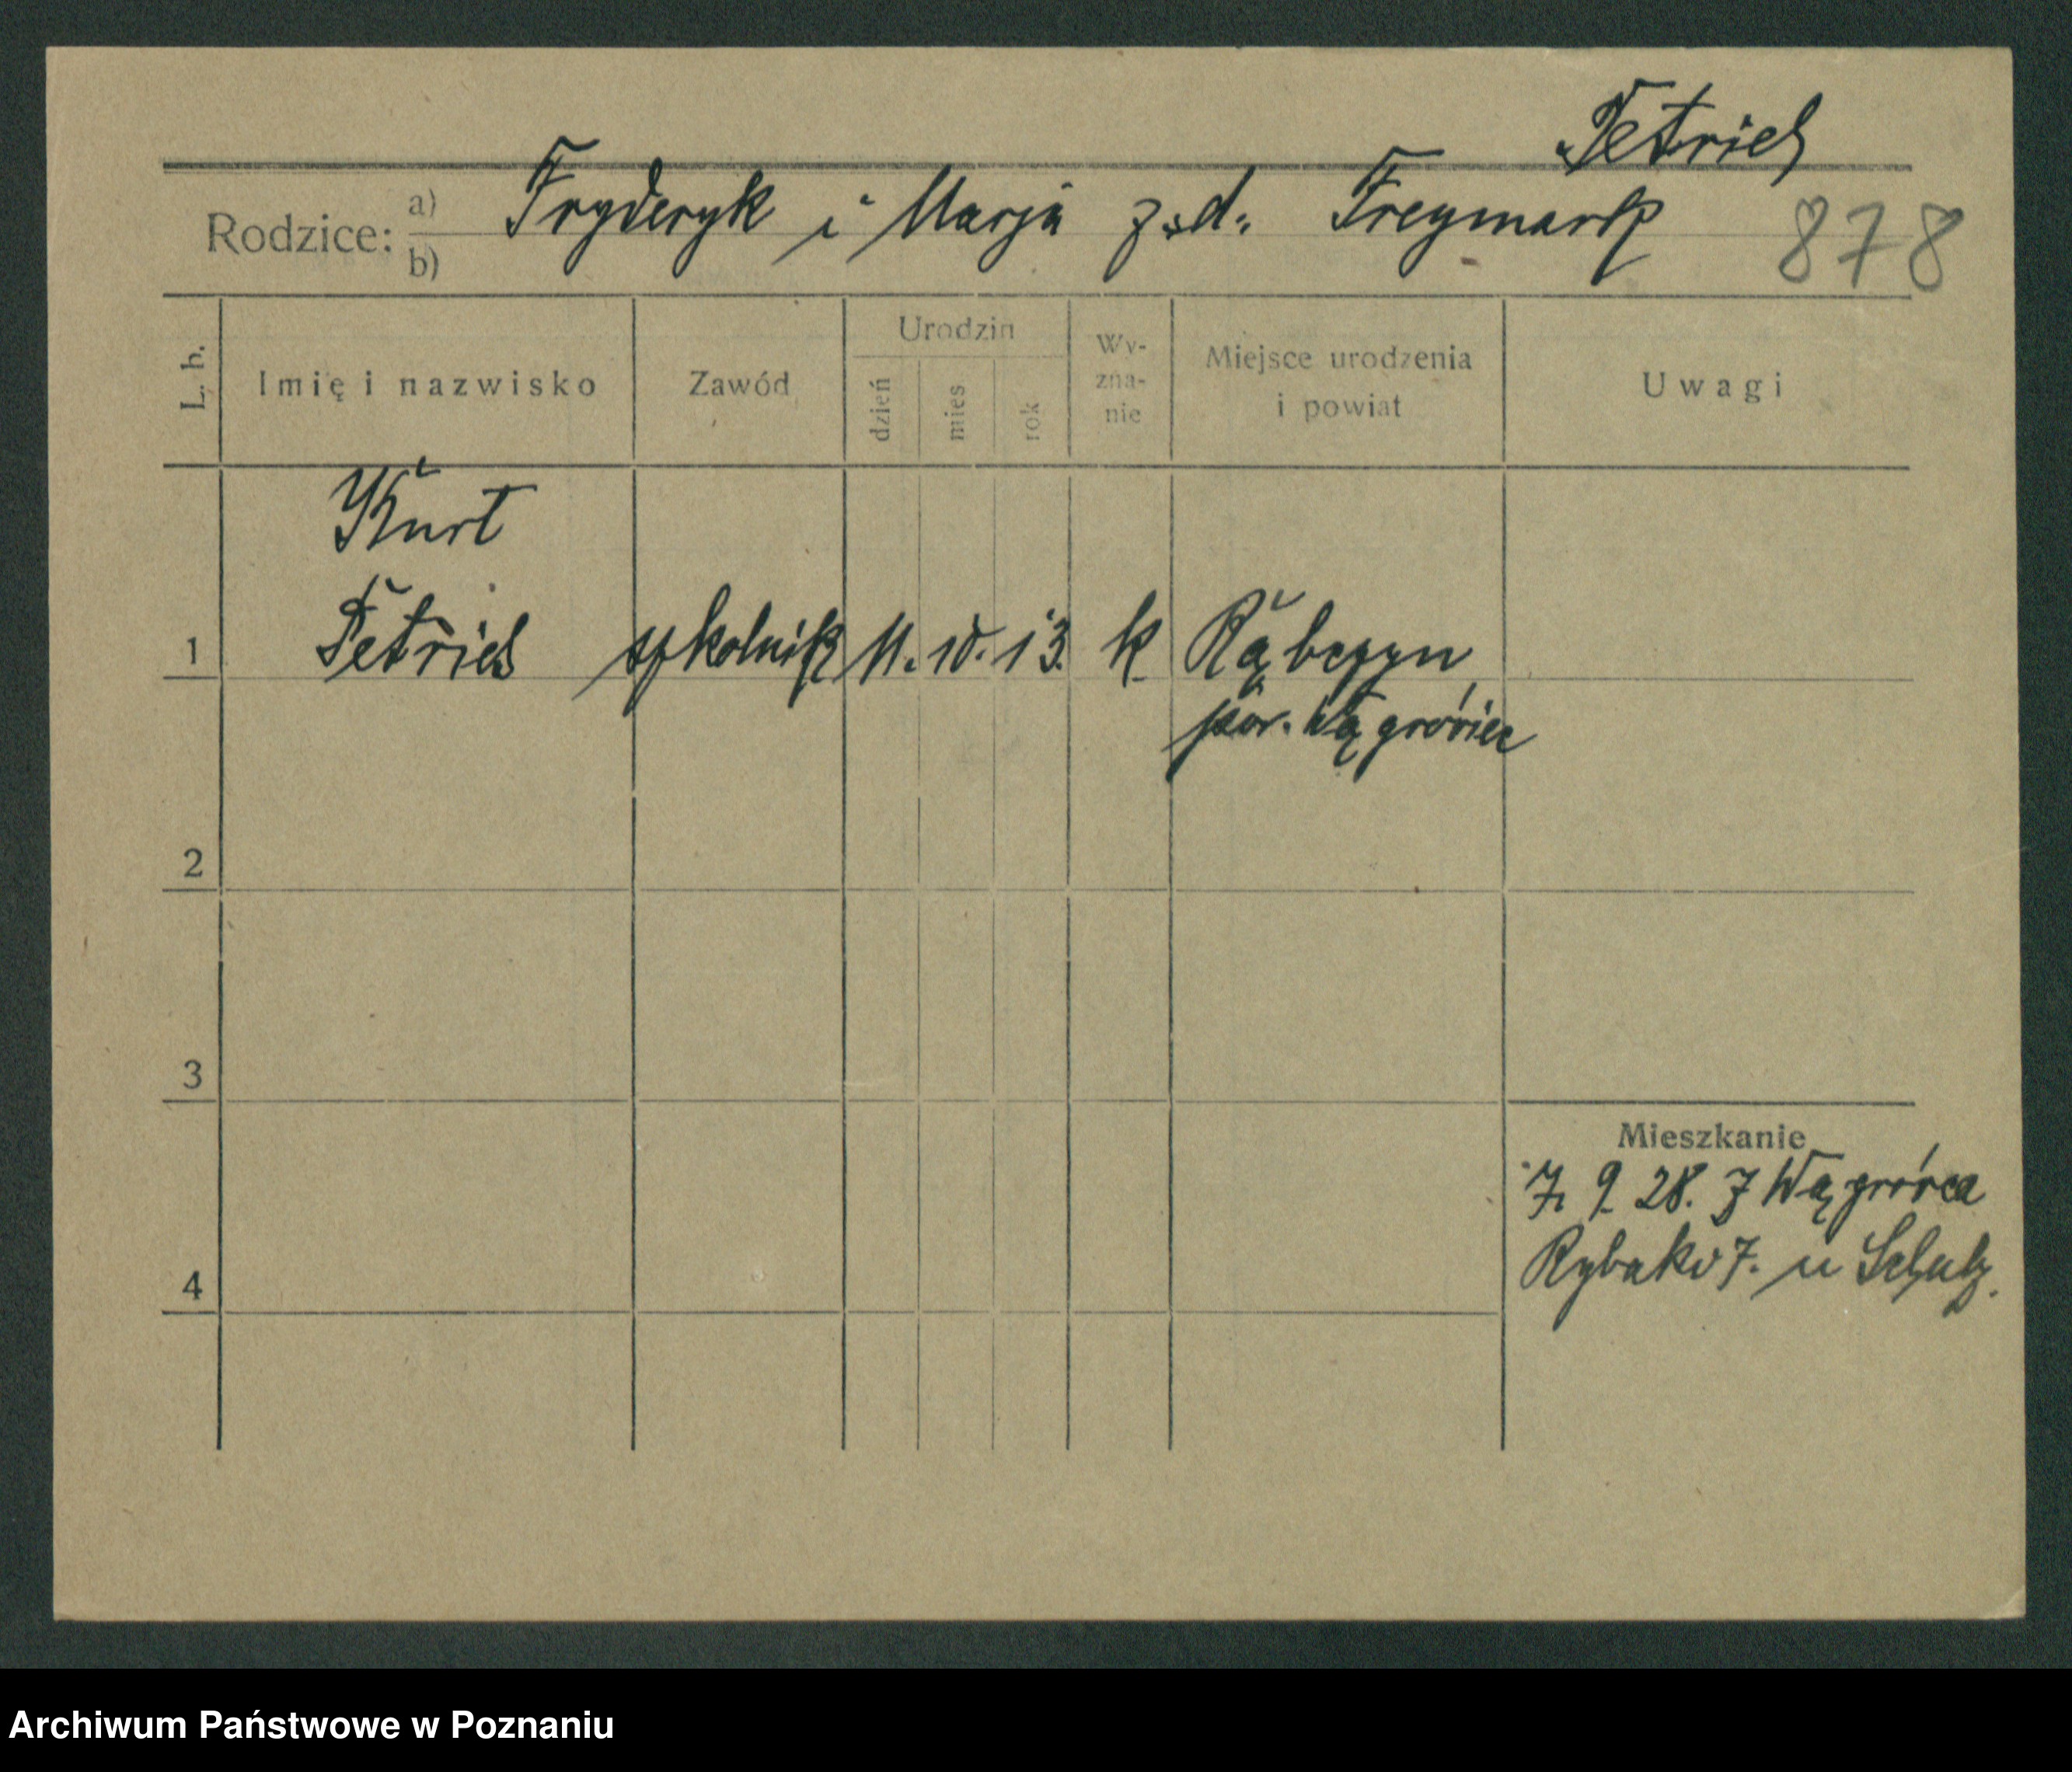 Petrich
Rodzice: a) b) Fryderyk i Marja z. d. Freymark 878
L. b. Imię i nazwisko Zawód Urodzin dzień mies rok Wy-zna-nie Miejsce urodzenia i powiat Uwagi
Kurt
1 Petrich szkolnik 11. 10. 13. k Rąbczyn
pow. Wągrówiec
2
3
Mieszkanie
7. 9. 28. z Wągrówca
4 Rybaki 7. u Schulz.
Archiwum Państwowe w Poznaniu